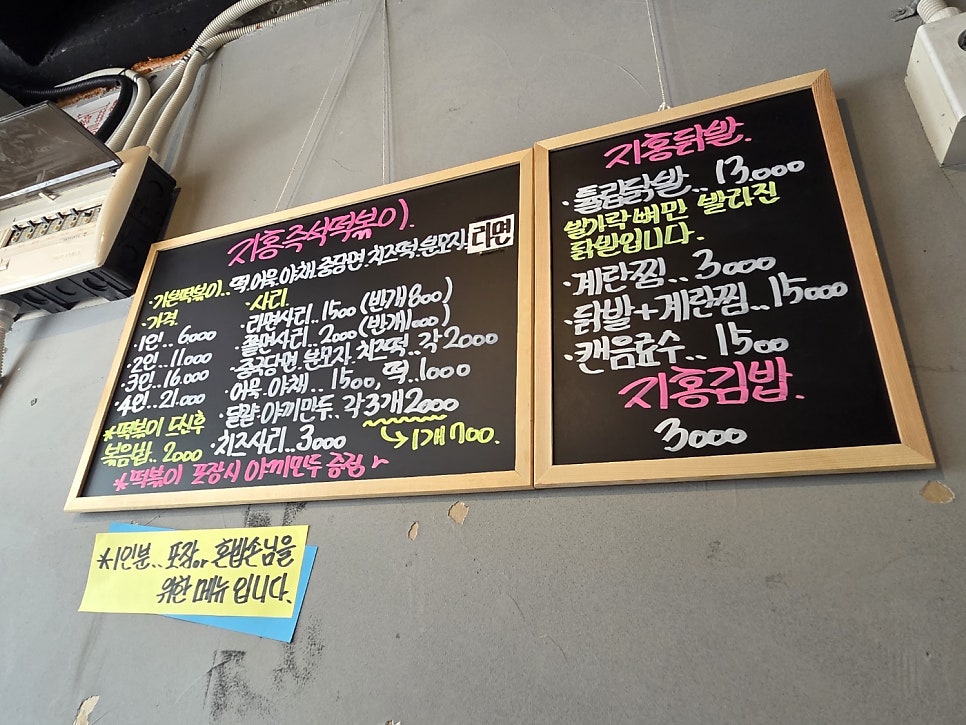 지홍즉석떡볶이.
·기본떡볶이.. 떡.어묵.야채.중당면.치즈떡.분모자.라면
·가격
·1인.. 6000
·2인.. 11.000
·3인.. 16.000
·4인.. 21.000
*떡볶이 드신후
볶음밥.. 2000
·사리.
·라면사리.. 1500 (반개 800)
·쫄면사리.. 2000 (반개 1000)
·중국당면. 분모자. 치즈떡.. 각 2000
·어묵. 야채.. 1500, 떡..1000
·달걀·야끼만두.. 각 3개 2000
→ 1개 700.
·치즈사리.. 3000
*떡볶이 포장시 야끼만두 증림~
지홍닭발.
·튤립닭발.. 13.000
발가락뼈만 발라진
닭발입니다.
·계란찜.. 3000
·닭발+계란찜.. 15000
·캔음료수.. 1500
지홍김밥.
3000
*1인분.. 포장or 혼밥손님을
위한 메뉴입니다.